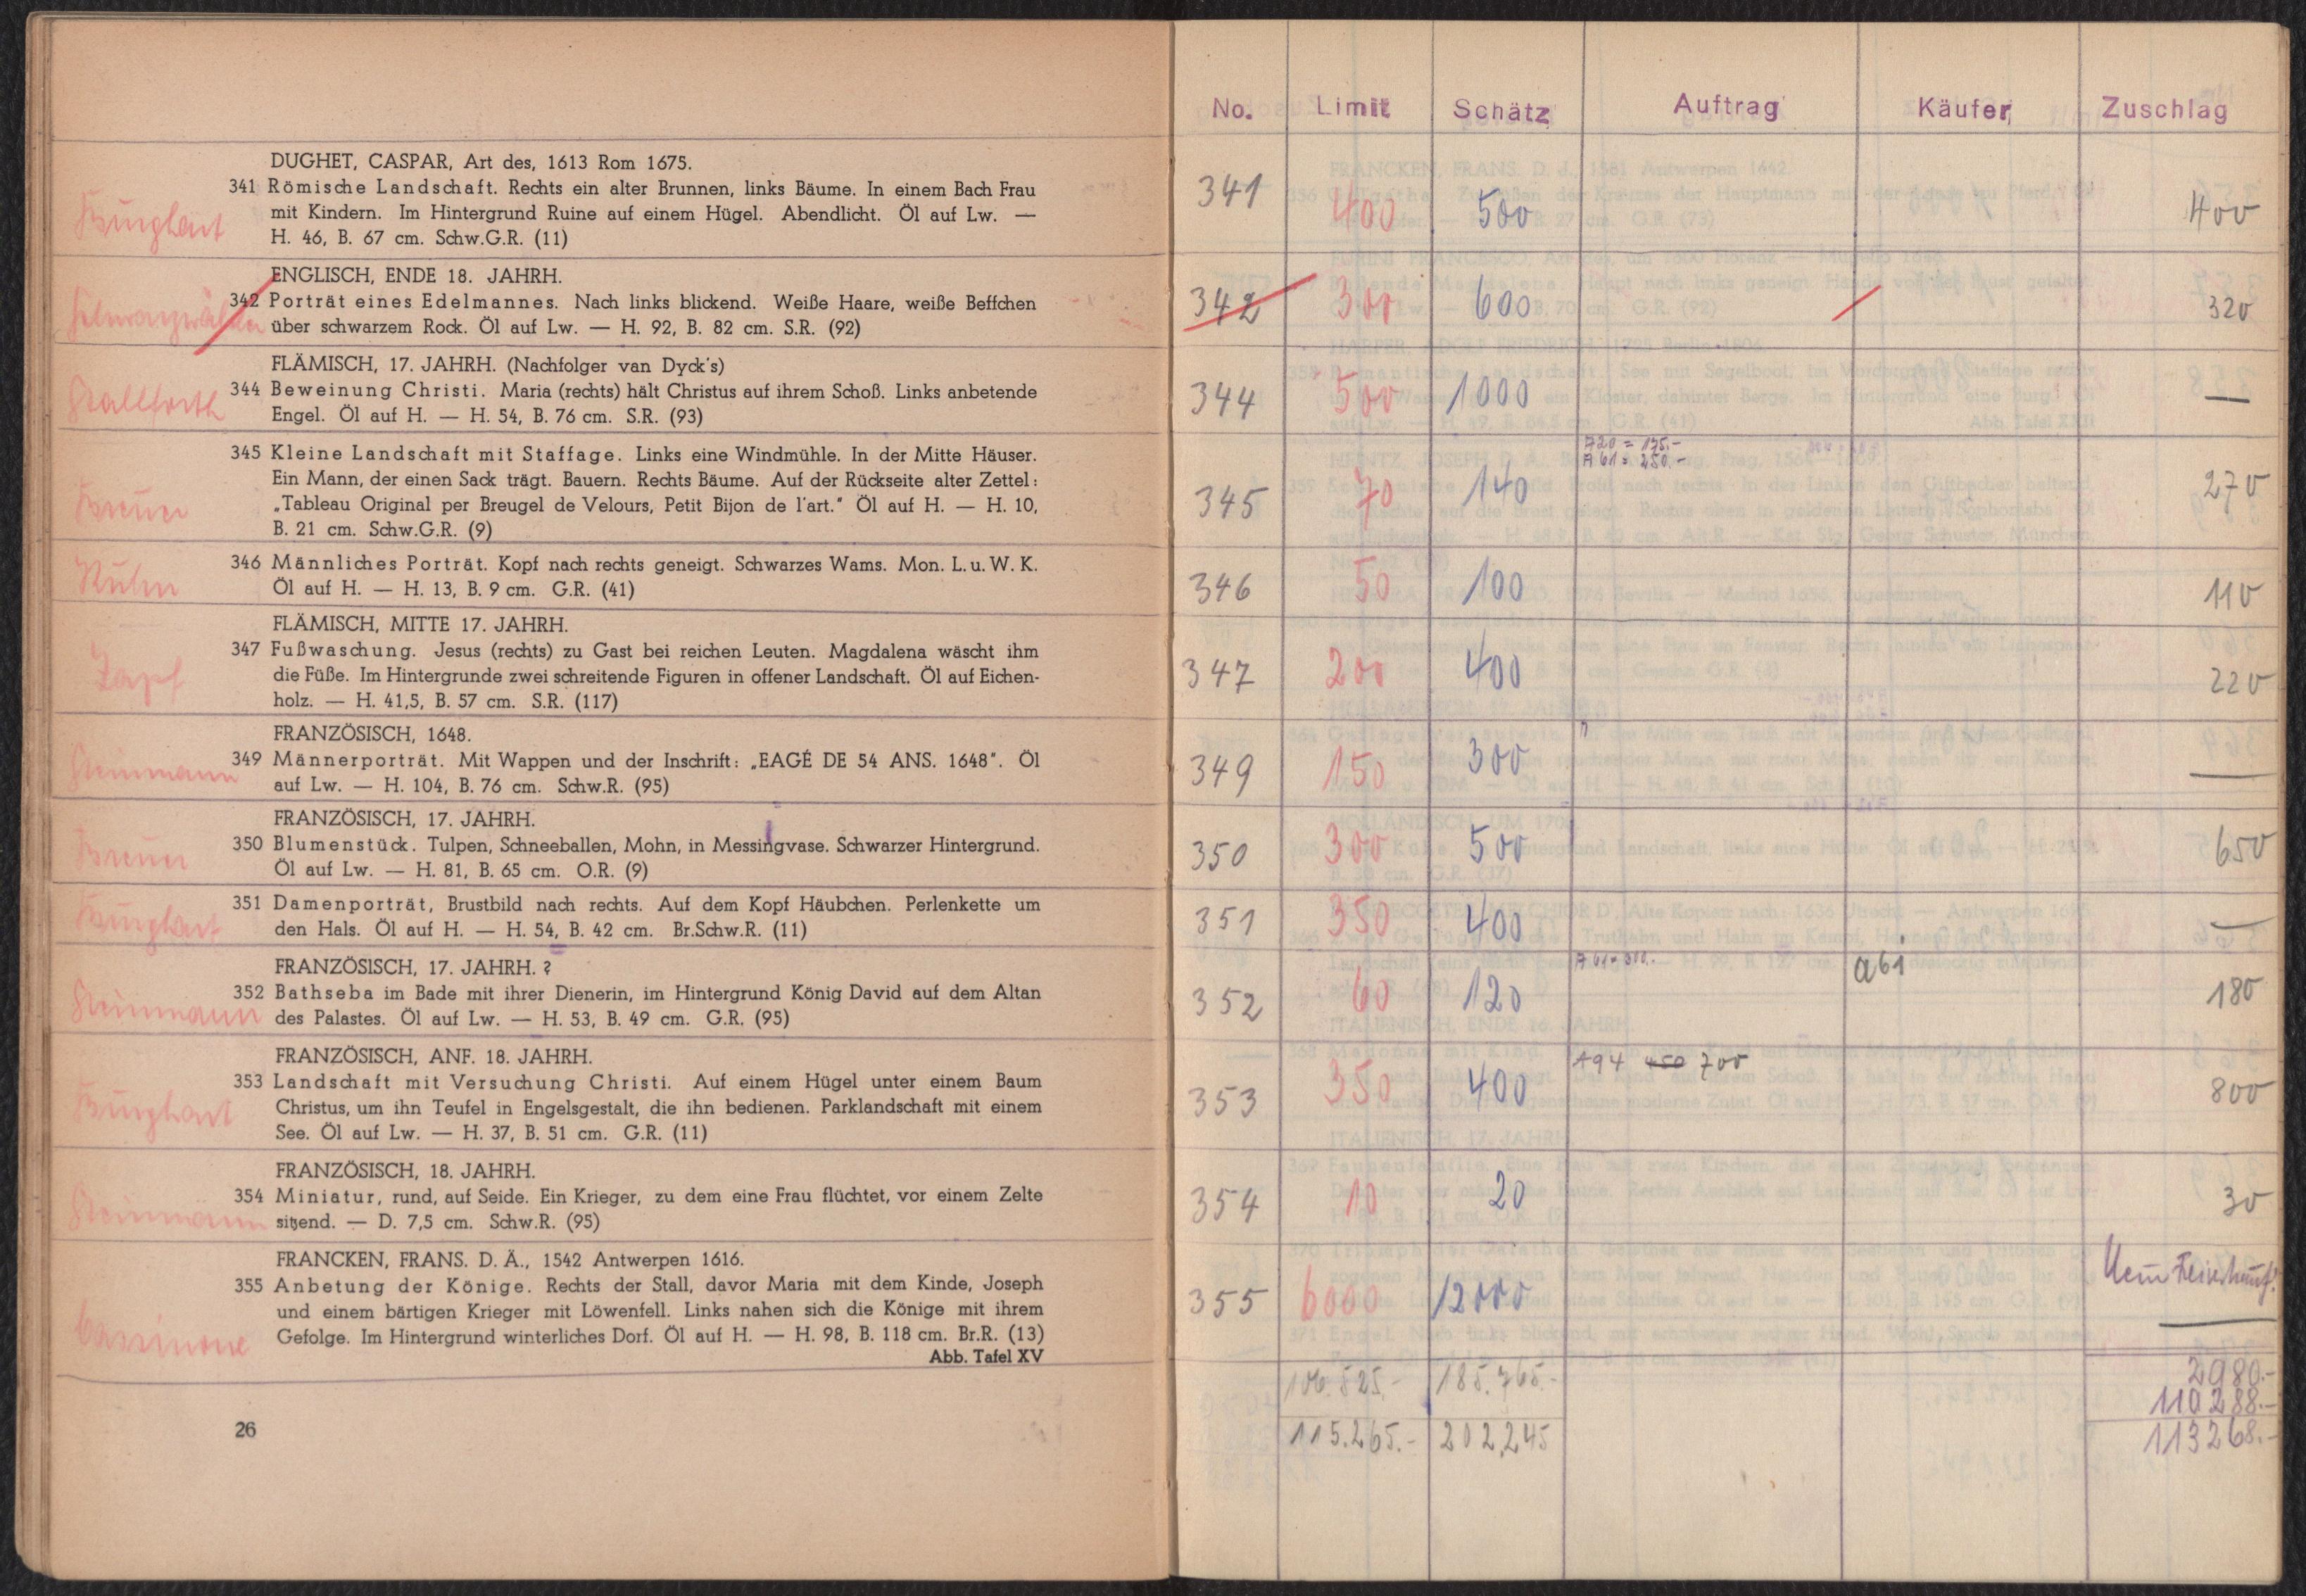 DUGHET, CASPAR, Art des, 1613 Rom 1675.
341 Römische Landschaft. Rechts ein alter Brunnen, links Bäume. In einem Bach Frau
mit Kindern. Im Hintergrund Ruine auf einem Hügel. Abendlicht. Öl auf Lw. —
H. 46, B. 67 cm. Schw.G.R. (11)
Burghart
ENGLISCH, ENDE 18. JAHRH.
342 Porträt eines Edelmannes. Nach links blickend. Weiße Haare, weiße Beffchen
über schwarzem Rock. Öl auf Lw. — H. 92, B. 82 cm. S.R. (92)
FLÄMISCH, 17. JAHRH. (Nachfolger van Dyck's)
344 Beweinung Christi. Maria (rechts) hält Christus auf ihrem Schoß. Links anbetende
Engel. Öl auf H. — H. 54, B. 76 cm. S.R. (93)
Stallforth
345 Kleine Landschaft mit Staffage. Links eine Windmühle. In der Mitte Häuser.
Ein Mann, der einen Sack trägt. Bauern. Rechts Bäume. Auf der Rückseite alter Zettel:
„Tableau Original per Breugel de Velours, Petit Bijon de l'art.“ Öl auf H. — H. 10,
B. 21 cm. Schw.G.R. (9)
Breuer
346 Männliches Porträt. Kopf nach rechts geneigt. Schwarzes Wams. Mon. L. u. W. K.
Öl auf H. — H. 13, B. 9 cm. G.R. (41)
Kuhn
FLÄMISCH, MITTE 17. JAHRH.
347 Fußwaschung. Jesus (rechts) zu Gast bei reichen Leuten. Magdalena wäscht ihm
die Füße. Im Hintergrunde zwei schreitende Figuren in offener Landschaft. Öl auf Eichen-
holz. — H. 41,5, B. 57 cm. S.R. (117)
Zapf
FRANZÖSISCH, 1648.
349 Männerporträt. Mit Wappen und der Inschrift: „EAGÉ DE 54 ANS. 1648“. Öl
auf Lw. — H. 104, B. 76 cm. Schw.R. (95)
Steinmann
FRANZÖSISCH, 17. JAHRH.
350 Blumenstück. Tulpen, Schneeballen, Mohn, in Messingvase. Schwarzer Hintergrund.
Öl auf Lw. — H. 81, B. 65 cm. O.R. (9)
Breuer
351 Damenporträt, Brustbild nach rechts. Auf dem Kopf Häubchen. Perlenkette um
den Hals. Öl auf H. — H. 54, B. 42 cm. Br.Schw.R. (11)
Burghart
FRANZÖSISCH, 17. JAHRH. ?
352 Bathseba im Bade mit ihrer Dienerin, im Hintergrund König David auf dem Altan
des Palastes. Öl auf Lw. — H. 53, B. 49 cm. G.R. (95)
Steinmann
FRANZÖSISCH, ANF. 18. JAHRH.
353 Landschaft mit Versuchung Christi. Auf einem Hügel unter einem Baum
Christus, um ihn Teufel in Engelsgestalt, die ihn bedienen. Parklandschaft mit einem
See. Öl auf Lw. — H. 37, B. 51 cm. G.R. (11)
Burghart
FRANZÖSISCH, 18. JAHRH.
354 Miniatur, rund, auf Seide. Ein Krieger, zu dem eine Frau flüchtet, vor einem Zelte
sitzend. — D. 7,5 cm. Schw.R. (95)
Steinmann
FRANCKEN, FRANS. D. Ä., 1542 Antwerpen 1616.
355 Anbetung der Könige. Rechts der Stall, davor Maria mit dem Kinde, Joseph
und einem bärtigen Krieger mit Löwenfell. Links nahen sich die Könige mit ihrem
Gefolge. Im Hintergrund winterliches Dorf. Öl auf H. — H. 98, B. 118 cm. Br.R. (13)
Abb. Tafel XV
Cassinone
26
No. Limit Schätz Auftrag Käufer Zuschlag
341 400 500 400
342 300 600 320
344 500 1000 —
A 20 = 175.-
A 61 = 250.-
345 70 140 270
346 50 100 110
347 200 400 220
349 150 300 —
350 300 500 650
351 350 400 —
A 61 = 310.-
352 60 120 a61 180
A94 450 700
353 350 400 800
354 10 20 30
355 6000 12000 —
106.525.- 185.765.- 2980.-
110288.-
115.265.- 202,245 113268.-